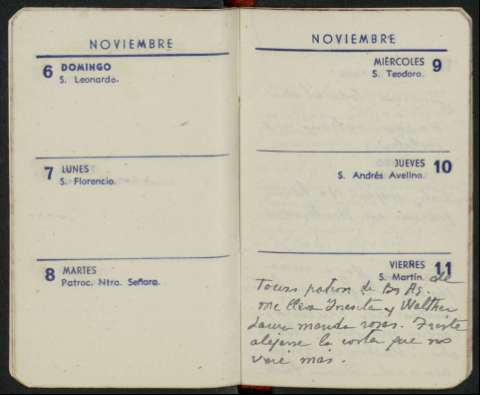 NOVIEMBRE
6 DOMINGO
S. Leonardo.
7 LUNES
S. Florencio.
8 MARTES
Patroc. Ntra. Señora.
NOVIEMBRE
MIÉRCOLES 9
S. Teodoro.
JUEVES 10
S. Andrés Avelino.
VIERNES 11
S. Martín. de
Tours patron de Bs As.
me lleva Inesita y Walther
Laura manda rosas. Triste
alejarse la costa que no
veré más.